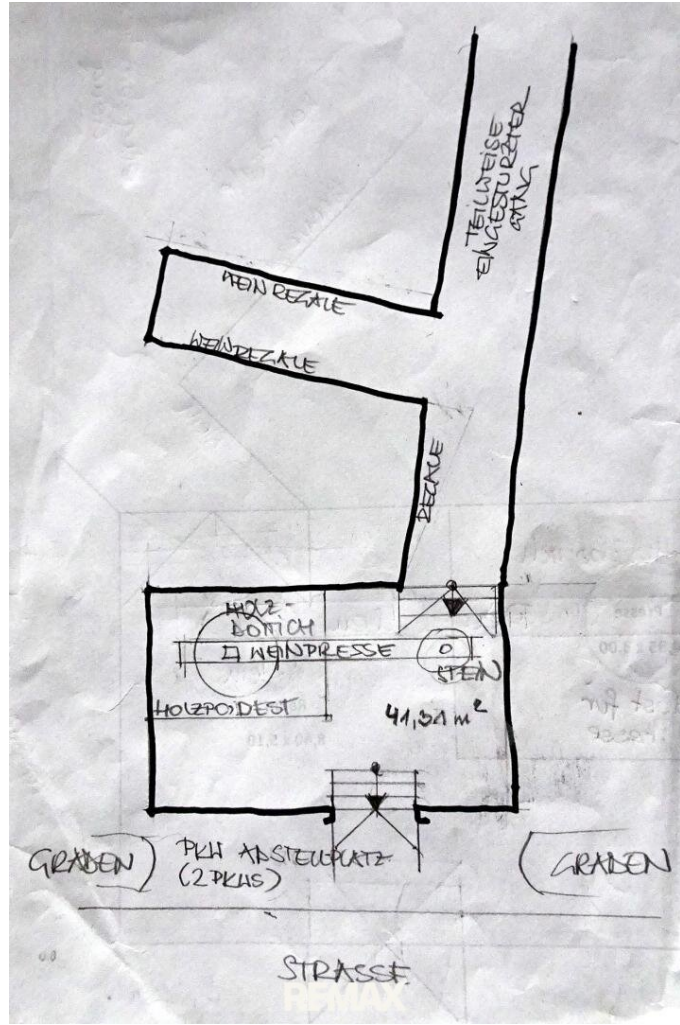 TEILWEISE
EINGESTÜRZTER
GANG
WEINREGALE
WEINREGALE
REGALE
HOLZ-
BOTTICH
WEINPRESSE
STEIN
HOLZPODEST
41,31 m²
GRABEN
PKW ABSTELLPLATZ
(2 PKWS)
GRABEN
STRASSE
REMAX